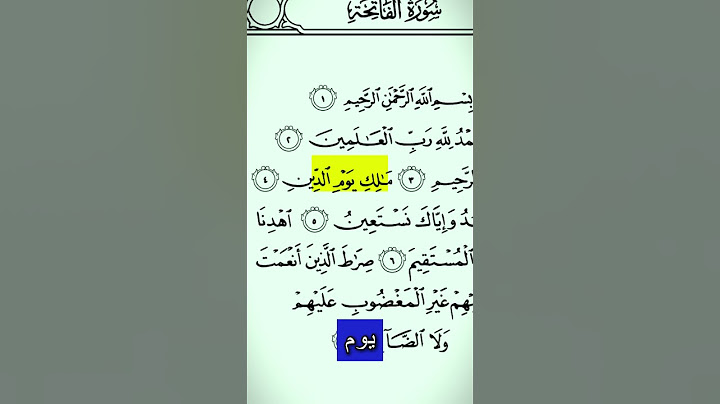 سُورَةُ الفَاتِحَةِ
بِسْمِ ٱللَّهِ ٱلرَّحْمَٰنِ ٱلرَّحِيمِ ١
لِلَّهِ رَبِّ ٱلْعَٰلَمِينَ ٢
مَٰلِكِ يَوْمِ ٱلدِّينِ ٤ ٣
وَإِيَّاكَ نَسْتَعِينُ ٥ ٱهْدِنَا
ٱلْمُسْتَقِيمَ ٦ صِرَٰطَ ٱلَّذِينَ أَنْعَمْتَ
غَيْرِ ٱلْمَغْضُوبِ عَلَيْهِمْ
وَلَا
يوم